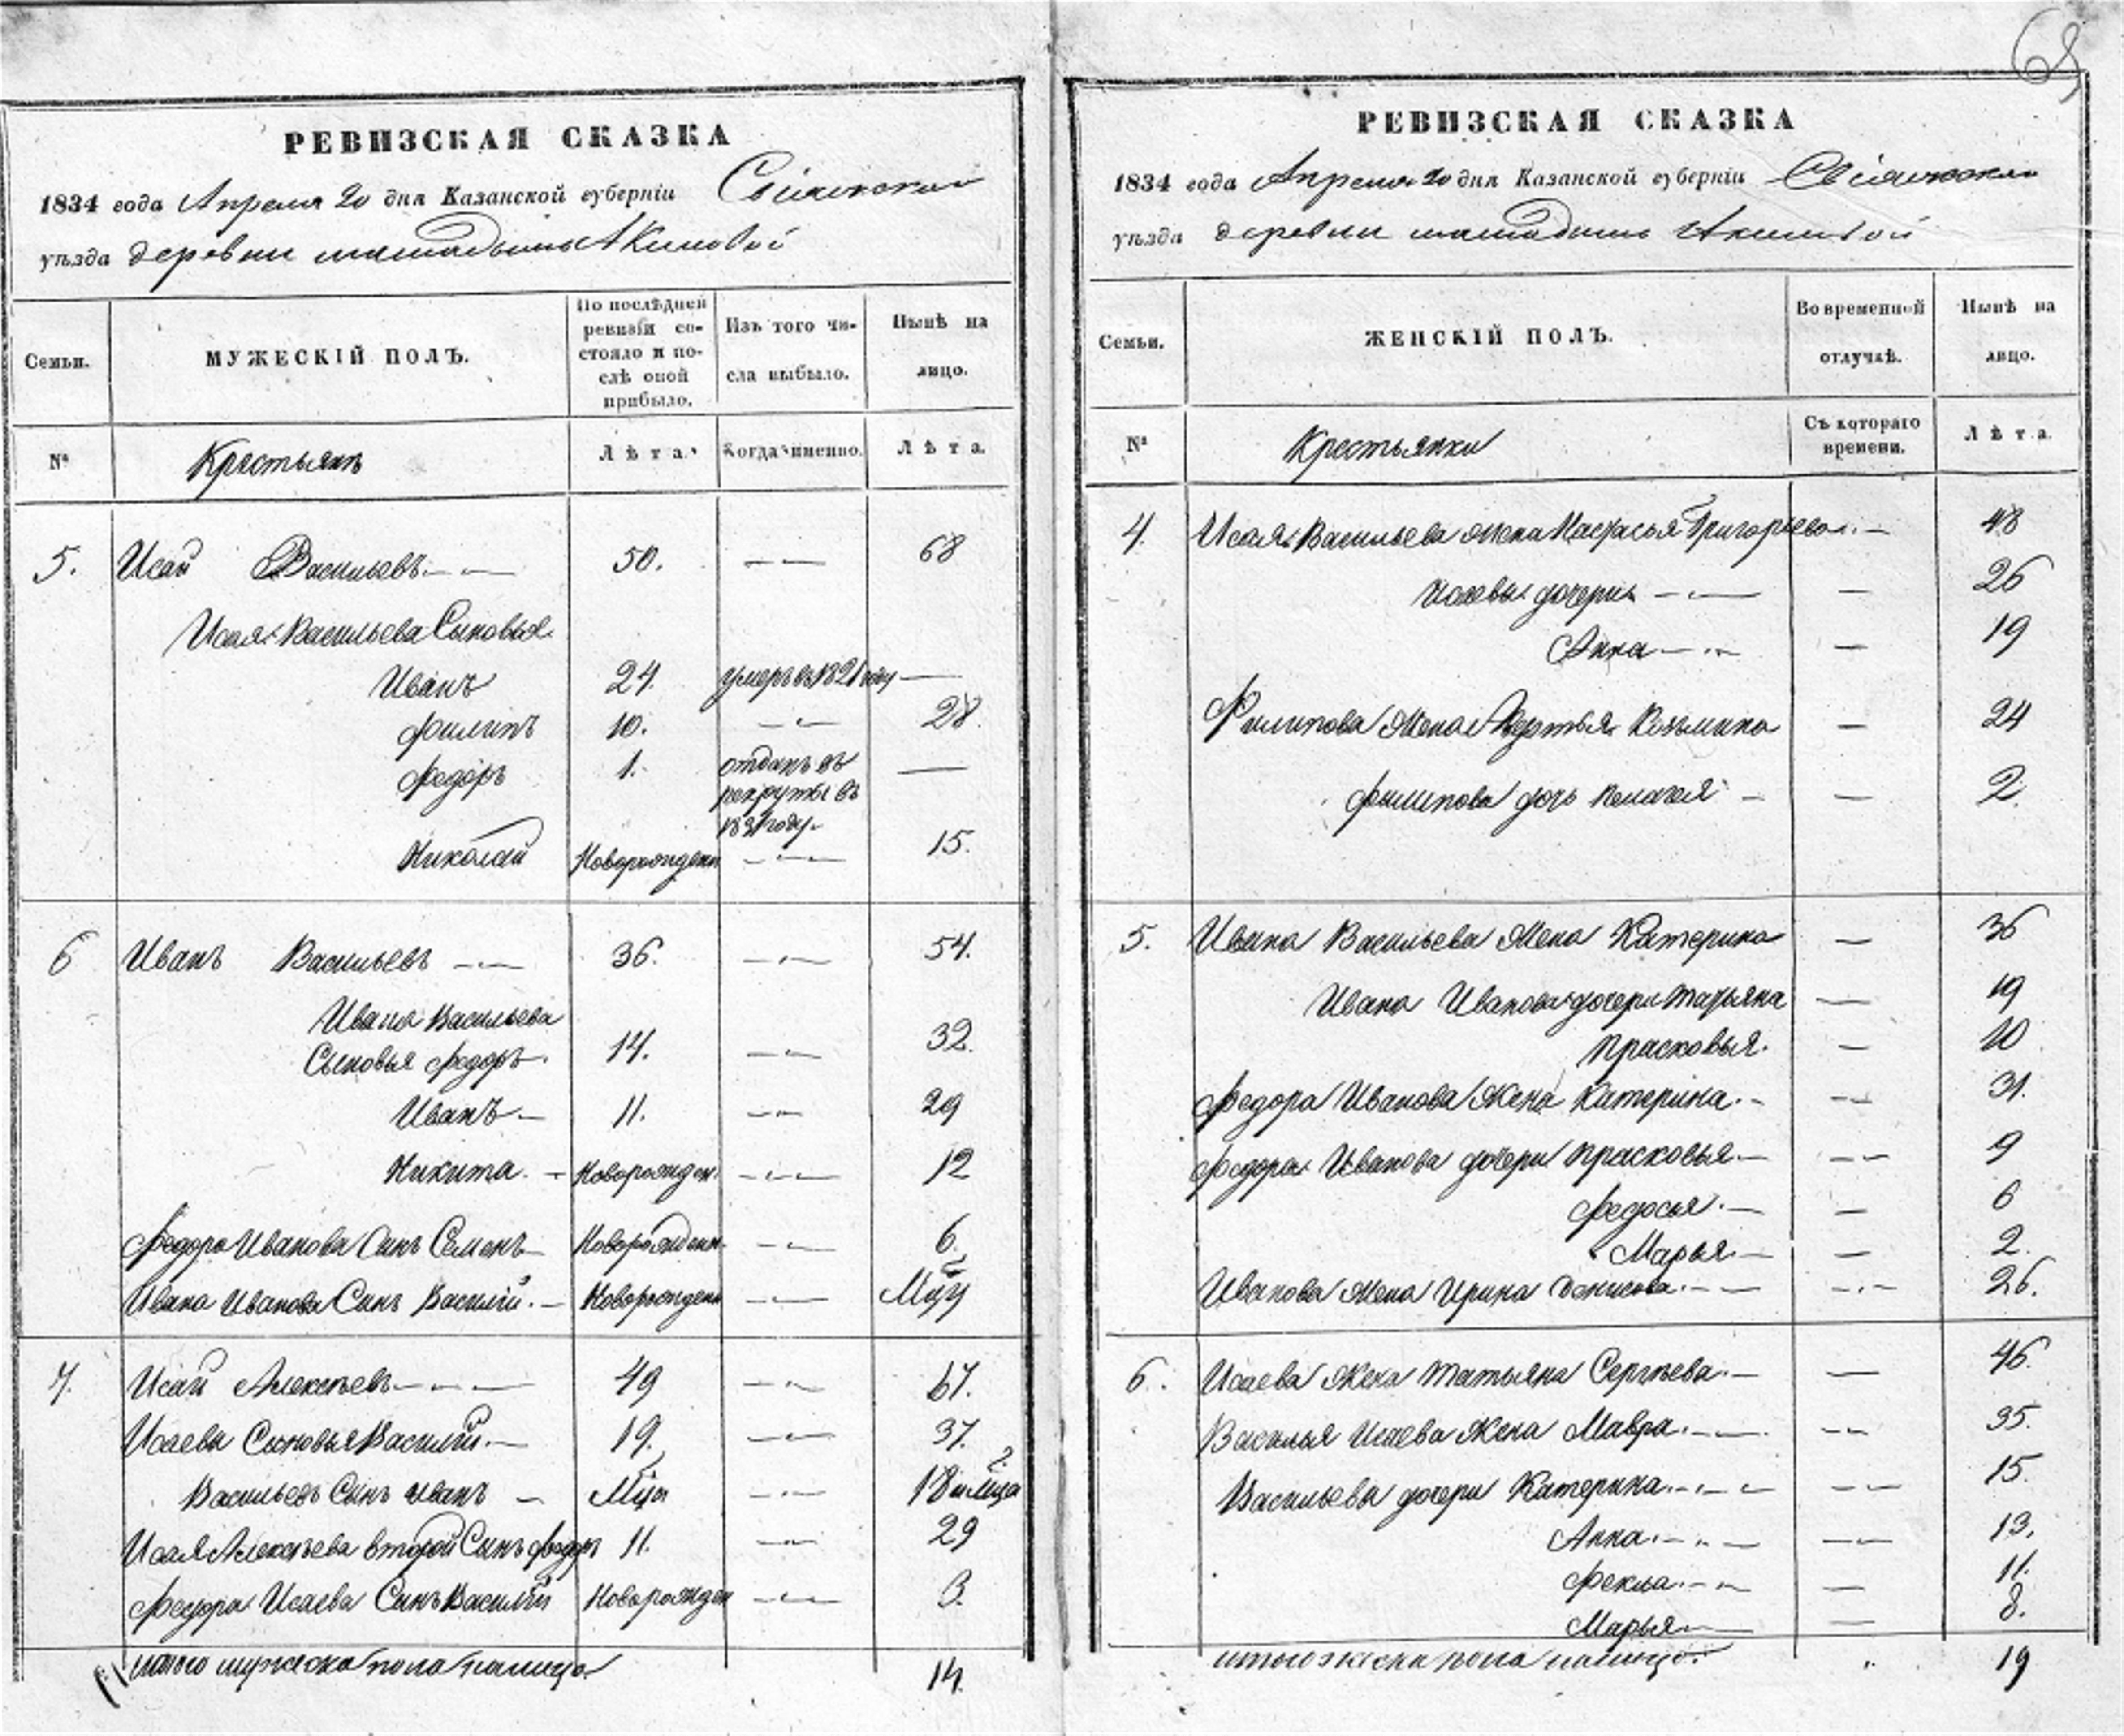 65
РЕВИЗСКАЯ СКАЗКА
1834 года Апреля 20 дня Казанской губерніи Свіяжскаго
уѣзда деревни Акиловой
Семьи.
МУЖЕСКІЙ ПОЛЪ.
По послѣдней ревизіи состояло и послѣ оной прибыло.
Изъ того числа выбыло.
Нынѣ на лицо.
№
Крестьянъ
Лѣта.
Когда именно.
Лѣта.
5. Исай Васильевъ 50. 68
Исая Васильева Сыновья
Иванъ 24. умеръ въ 1821 году
Филипъ 10. 28.
Федоръ 1. отданъ въ
рекруты въ
1831 году
Николай Новорожденъ 15.
6 Иванъ Васильевъ 36. 54.
Ивана Васильева
Сыновья Федоръ 14. 32.
Иванъ 11. 29
Никита Новорожден. 12
Федора Иванова Сынъ Семенъ Новорожден. 6.
Ивана Иванова Сынъ Василій Новорожден
7. Исай Алексѣевъ 49 67.
Исаевы Сыновья Василій 19. 37.
Васильевъ Сынъ Иванъ 18
Исая Алексѣева второй Сынъ Федоръ 11. 29
Федора Исаева Сынъ Василій Новорожден 3.
Итого мужеска пола налицо 14.
РЕВИЗСКАЯ СКАЗКА
1834 года Апреля 20 дня Казанской губерніи Свіяжскаго
уѣзда деревни Акиловой
Семьи.
ЖЕНСКІЙ ПОЛЪ.
Во временной отлучкѣ.
Нынѣ на лицо.
№
Крестьянки
Съ котораго времени.
Лѣта.
4. Исая Васильева жена Настасья Григорьева 48
Исаевы дочери 26
Анна 19
Филипова жена Козьмина 24
Филипова дочь Пелагея 2.
5. Ивана Васильева жена Катерина 36
Ивана Иванова дочери Татьяна 19
Прасковья 10
Федора Иванова жена Катерина 31.
Федора Иванова дочери Прасковья 9
Федосья 6
Марья 2.
Иванова жена Ирина Денисова 26.
6. Исаева жена Татьяна Сергѣева 46.
Василья Исаева жена Мавра 35.
Васильевы дочери Катерина 15.
Анна 13.
Фекла 11.
Марья 8.
Итого женска пола налицо 19